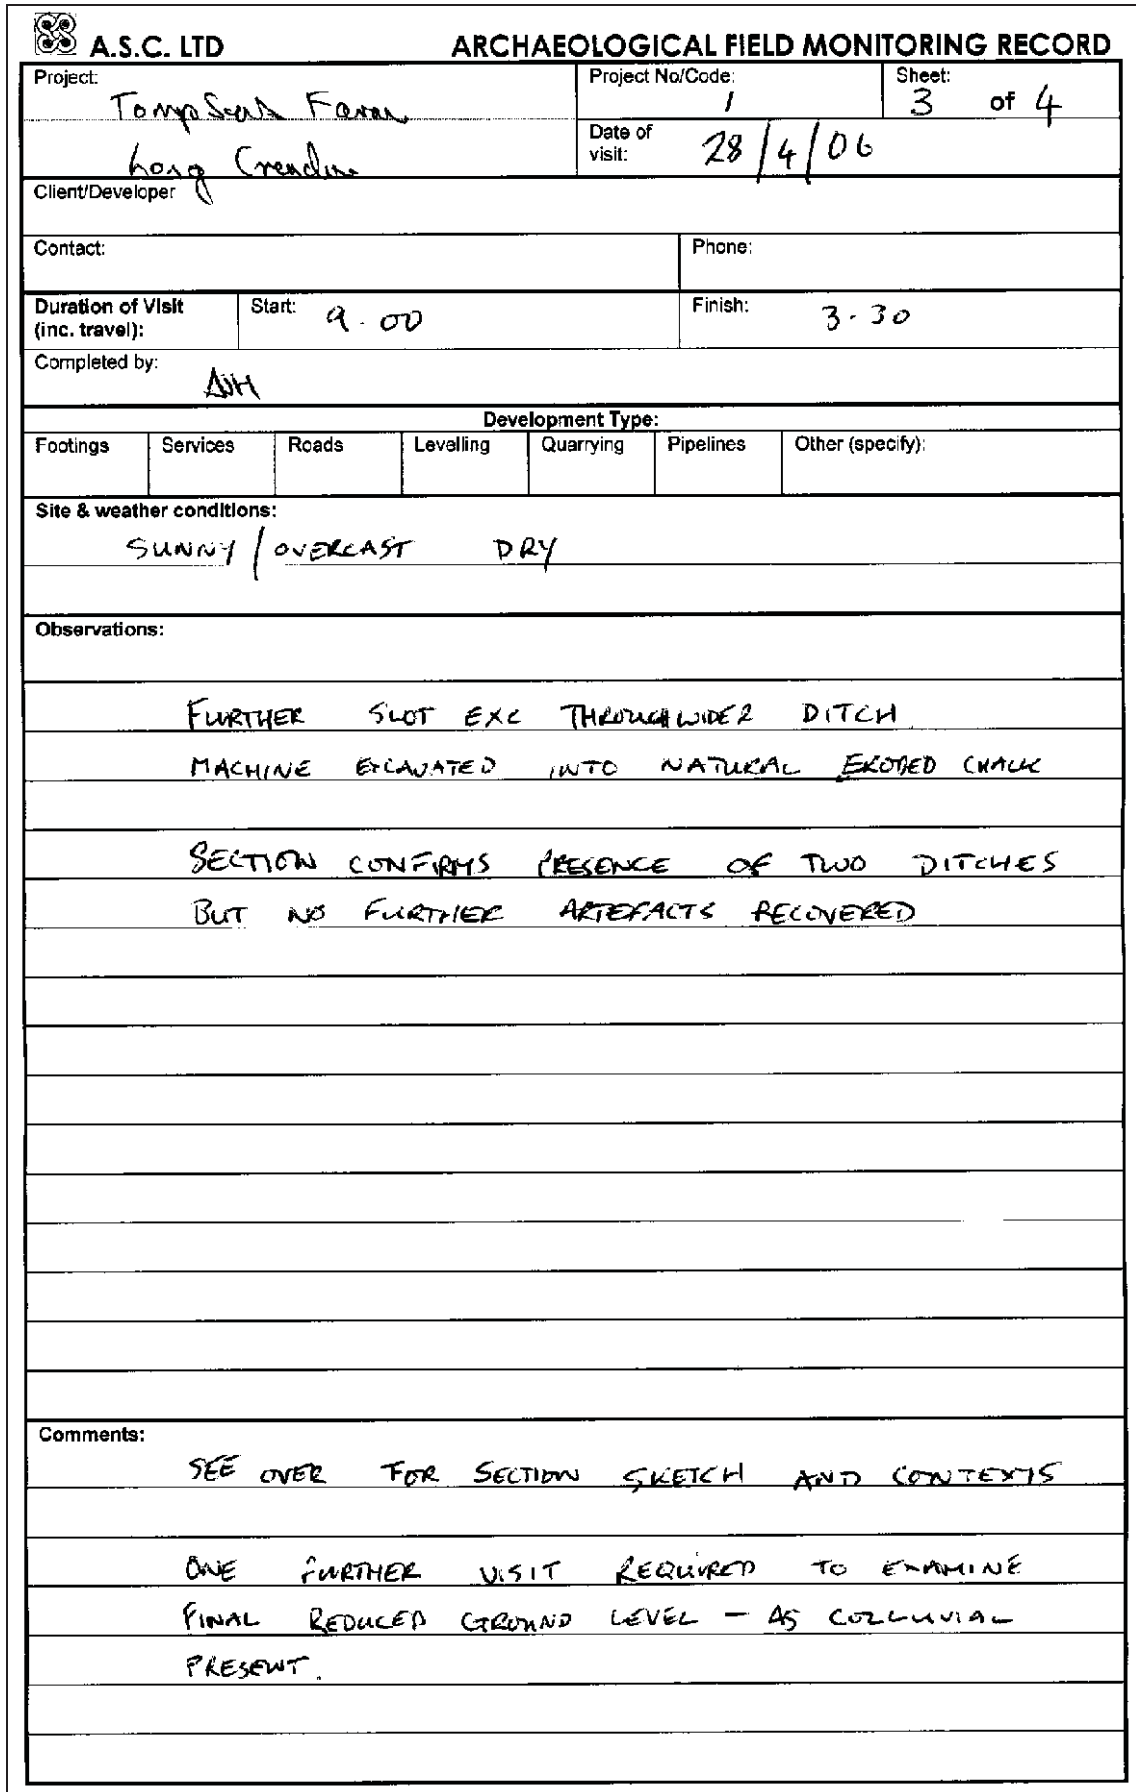 A.S.C. LTD ARCHAEOLOGICAL FIELD MONITORING RECORD
Project: Project No/Code: Sheet:
Farm 1 3 of 4
Long Crendon
Date of visit: 28/4/06
Client/Developer
Contact: Phone:
Duration of Visit (inc. travel): Start: 9.00 Finish: 3.30
Completed by:
Development Type:
Footings Services Roads Levelling Quarrying Pipelines Other (specify):
Site & weather conditions:
SUNNY / OVERCAST DRY
Observations:
FURTHER SLOT EXC THROUGH WIDER DITCH
MACHINE EXCAVATED INTO NATURAL ERODED CHALK
SECTION CONFIRMS PRESENCE OF TWO DITCHES
BUT NO FURTHER ARTEFACTS RECOVERED
Comments:
SEE OVER FOR SECTION SKETCH AND CONTEXTS
ONE FURTHER VISIT REQUIRED TO EXAMINE
FINAL REDUCED GROUND LEVEL - AS COLLUVIAL
PRESENT.